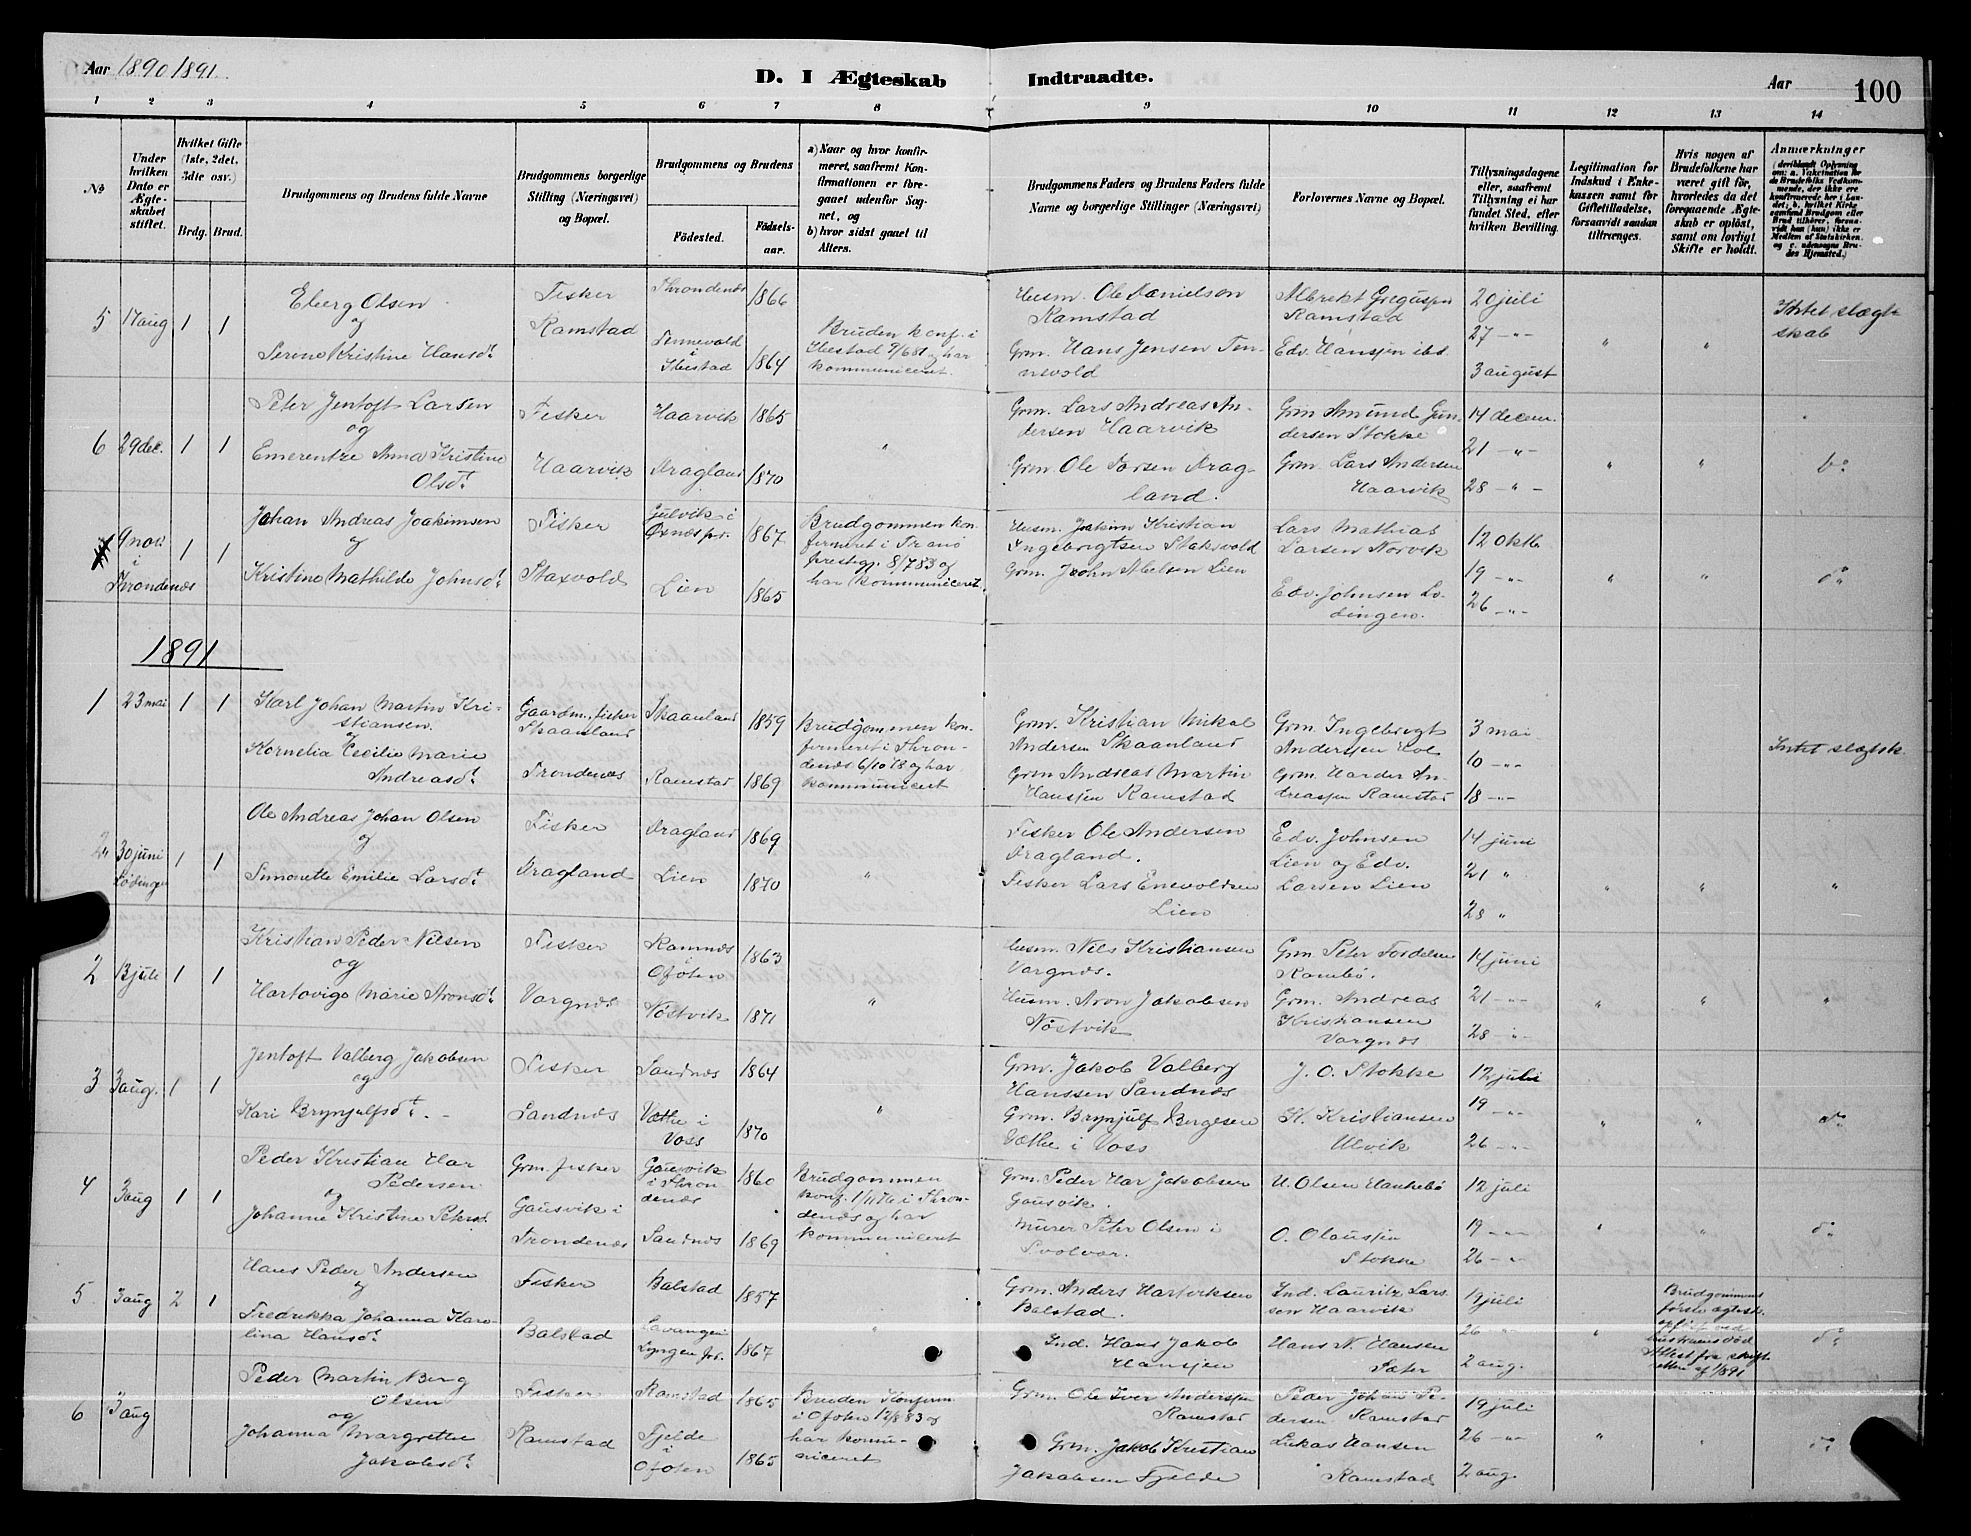 Aar 1890 1891.
D. I Ægteskab Indtraadte.
Aar
100
1 2 3 4 5 6 7 8 9 10 11 12 13 14
No
Under hvilken Dato er Ægteskabet stiftet.
Hvilket Gifte (1ste, 2det, 3die osv.)
Brdg. Brud.
Brudgommens og Brudens fulde Navne
Brudgommens borgerlige Stilling (Næringsvei) og Bopæl.
Brudgommens og Brudens
Fødested.
Fødselsaar.
a) Naar og hvor konfirmeret, saafremt Konfirmationen er foregaaet udenfor Sognet, og
b) hvor sidst gaaet til Alters.
Brudgommens Faders og Brudens Faders fulde Navne og borgerlige Stillinger (Næringsvei)
Forlovernes Navne og Bopæl.
Tillysningsdagene eller, saafremt Tillysning ei har fundet Sted, efter hvilken Bevilling.
Legitimation for Indskud i Enkekassen samt for Giftetilladelse, forsaavidt saadan tiltrænges.
Hvis nogen af Brudefolkene har været gift før, hvorledes da det foregaaende Ægteskab er opløst, samt om lovligt Skifte er holdt.
Anmærkninger
5 17 aug 1 1
Eberg Olsen
og
Serene Kristine Hansdt.
Fisker
Ramstad
Throndenæs 1866
Tennevold i Ibestad 1864
Bruden konf. i Ibestad 9/6 81 og har kommuniceret.
Husm. Ole Danielson Ramstad
Grm. Hans Jensen Tennevold
Albrekt Gregusen Ramstad
Edv. Hansen ibd.
20 juli
27 - " -
3 august
" "
Intet slægtskab
6 29 dec. 1 1
Peter Jentoft Larsen
og
Emerentze Anna Kristine Olsdt.
Fisker
Haarvik
Haarvik 1865
Dragland 1870
"
Grm. Lars Andreas Andersen Haarvik
Grm Ole Larsen Dragland.
Grm Amund Gundersen Stokke
Grm. Lars Andersen Haarvik
14 decem.
21 - " -
28 - " -
" "
do
9 nov. i Throndenæs 1 1
Johan Andreas Joakimsen
og
Kristine Mathilde Johnsdt.
Fisker
Staxvold
Gulvik i Øxnes pr. 1867
Lien 1865
Brudgommen konfirmeret i Tranø prestegj. 8/7 83 og har kommuniceret.
Husm. Jakim Kristian Ingebrigtsen Staksvold
Grm. John Nielsen Lien
Lars Mathias Larsen Norvik
Edv. Johnsen Lødingen.
12 oktb.
19 - " -
26 - " -
" "
do
1891
1 23 mai 1 1
Karl Johan Martin Kristiansen.
og
Kornelia Cecilie Marie Andreasdt.
Gaardm., fisker Skaanland
Trondenæs
Skaanland 1859
Ramstad 1869
Brudgommen konfirmeret i Throndenæs 6/10 78 og har kommuniceret
Grm. Kristian Mikal Andersen Skaanland
Grm Andreas Martin Hansen Ramstad
Grm. Ingebrigt Andersen Hol
Grm. Harder Andreasen Ramstad
3 mai
10 - " -
18 - " -
Intet slægtsk.
2" 30 juni Lødingen 1 1
Ole Andreas Johan Olsen
og
Simonette Emilie Larsdt
Fisker
Dragland
Dragland 1869
Lien 1870
"
Fisker Ole Andersen Dragland.
Fisker Lars Enevoldsen Lien
Edv. Johnsen Lien og Edv. Larsen Lien
14 juni
21 "
28 "
" " "
2 13 juli 1 1
Kristian Peder Nilsen
og
Hartoviga Marie Aronsdt.
Fisker
Vargnæs
Ramnæs i Ofoten 1863
Nøstvik 1871
"
Husm. Nils Kristiansen Vargnæs.
Husm. Aron Jakobsen Nøstvik
Grm. Peter Tordelsen Rambø.
Grm. Andreas Kristiansen Vargnæs
14 juni
21 - " -
28 - " -
" " "
3 3 aug. 1 1
Jentoft Valberg Jakobsen
og
Kari Brynjulfsdt. -
Fisker
Sandnæs
Sandnæs 1864
Væthe i Voss 1870
"
Grm. Jakob Valberg Hanssen Sandnæs
Grm. Brynjulf Bergesen Væthe i Voss
J. O. Stokke
H. Kristiansen Ulvik
12 juli
19 - " -
26 - " -
" "
do
4 3 aug 1 1
Peder Kristian Har Pedersen
og
Johanne Kristine Petersd.
Grm. fisker
Gausvik i
Trondenæs
Gausvik i Throndenæs 1860
Sandnæs 1869
Brudgommen konf. 1/10 76 i Throndenæs og har kommuniceret
Grm. Peder Har Jakobsen Gausvik.
Murer Peter Olsen i Svolvær.
U. Olsen Haukebø
O. Olausen Stokke
12 juli
19 - " -
26 - " -
" "
do
5 3 aug 2 1
Hans Peder Andersen
og
Fredrikka Johanna Karolina Hansdt.
Fisker
Balstad
Balstad 1857
Lavangen i Lyngen Prs. 1867
"
Grm. Anders Hartviksen Balstad.
Ind. Hans Jakob Hansen
Ind. Lauritz Larsen Haarvik
Hans N. Hansen Sæter
19 juli
26 - " -
2 aug.
"
Brudgommens første ægtesk. opløst ved hustruens død Attest fra skifteretten af 1/8 91
do
6 3 aug
Peder Martin Berg Olsen
og
Johanna Margrethe Jakobsdt.
Fisker
Ramstad
Ramstad 1865
Fjelde i Ofoten 1865
Bruden Konfirm. i Ofoten 12/8 83 og har kommuniceret
Grm. Ole Iver Andersen Ramstad
Grm. Jakob Kristian Jakobsen Fjelde
Peder Johan Pedersen Ramstad
Lukas Hansen Ramstad
19 juli
26 - " -
2 aug.
" "
do